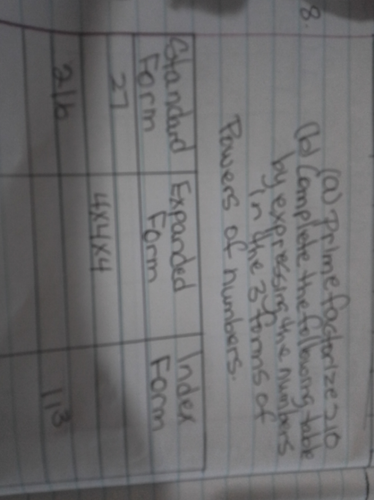 8. (a) Prime factorize 210
(b) Complete the following table
by expressing the numbers
in the 3 forms of
Powers of numbers.
Standard Form Expanded Form Index Form
27
4x4x4
216
11³